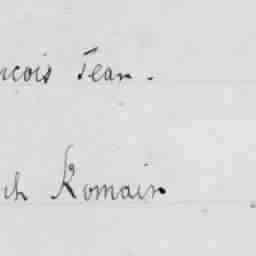 ncois Jean.
ch Romain